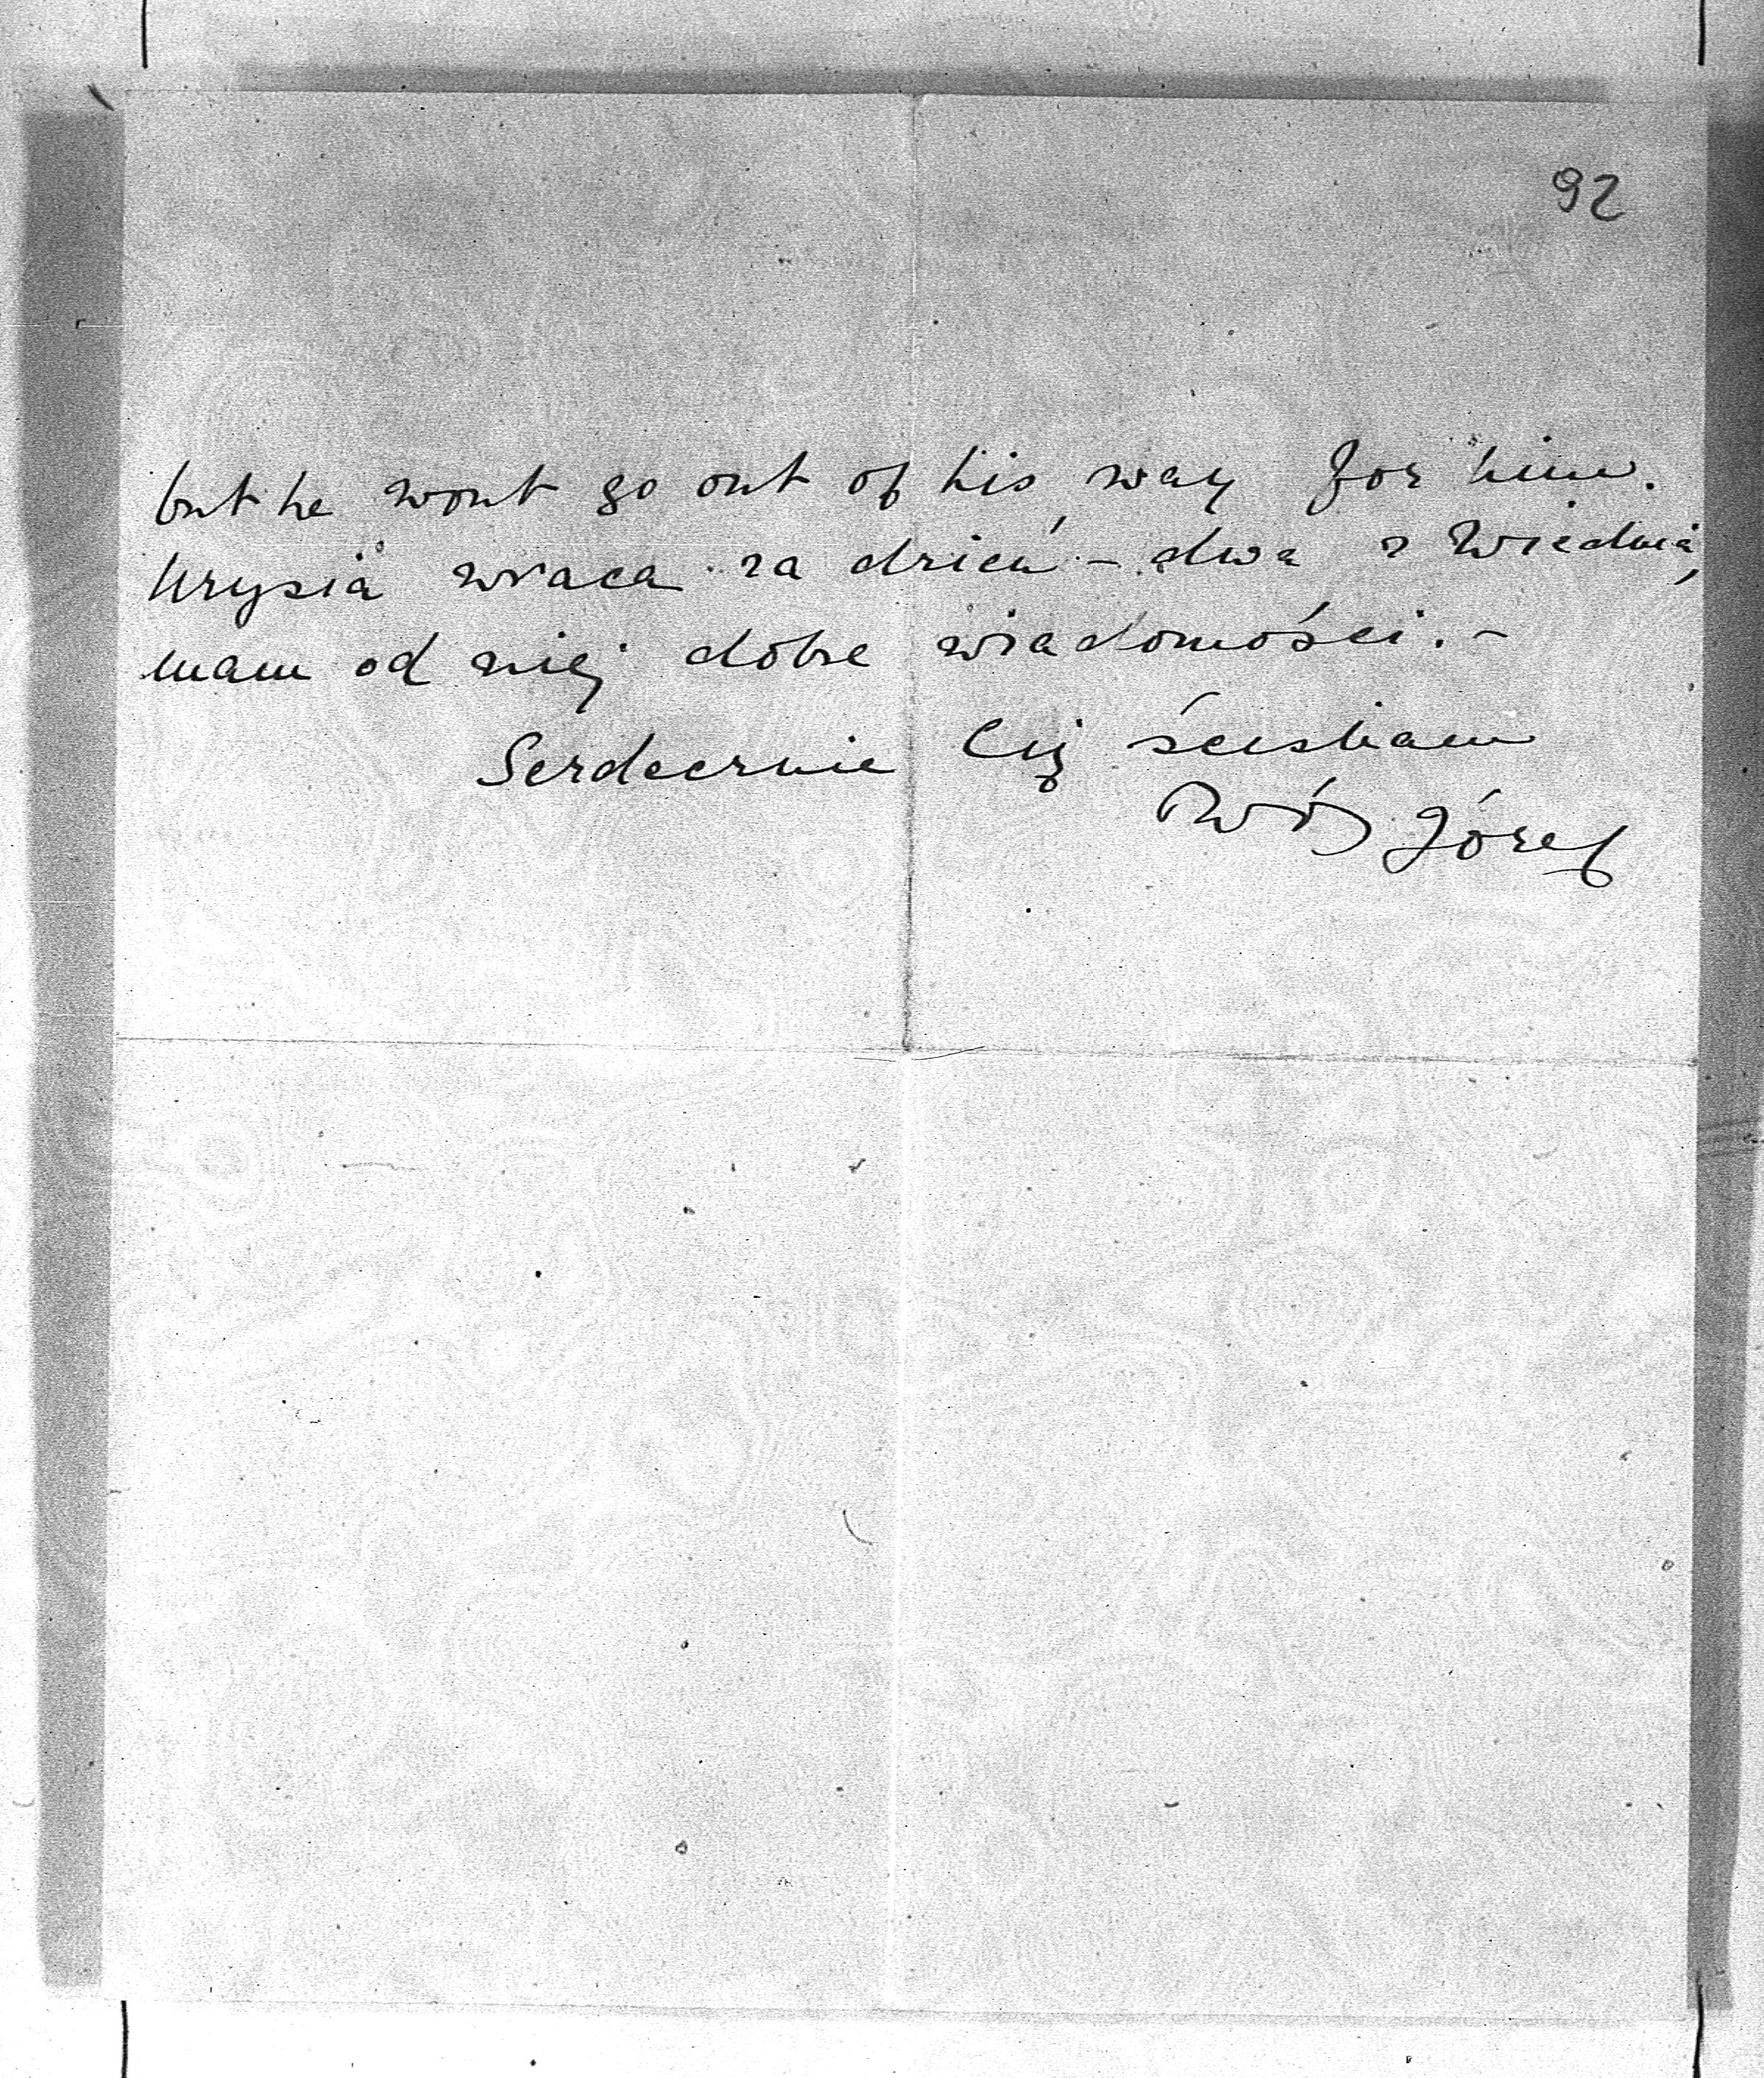 92
but he wont go out of his way for him.
Krysia wraca za dzień – dwa z Wiednia,
mam od niej dobre wiadomości. –
Serdecznie Cię ściskam
Twój Józef